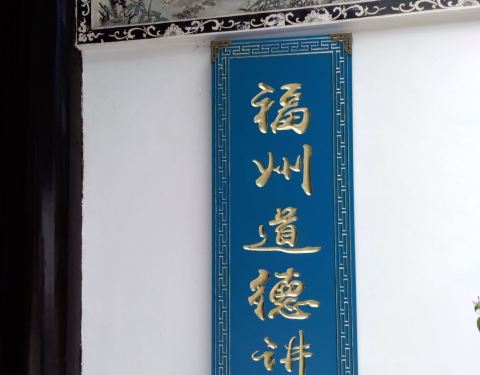 福州道德讲